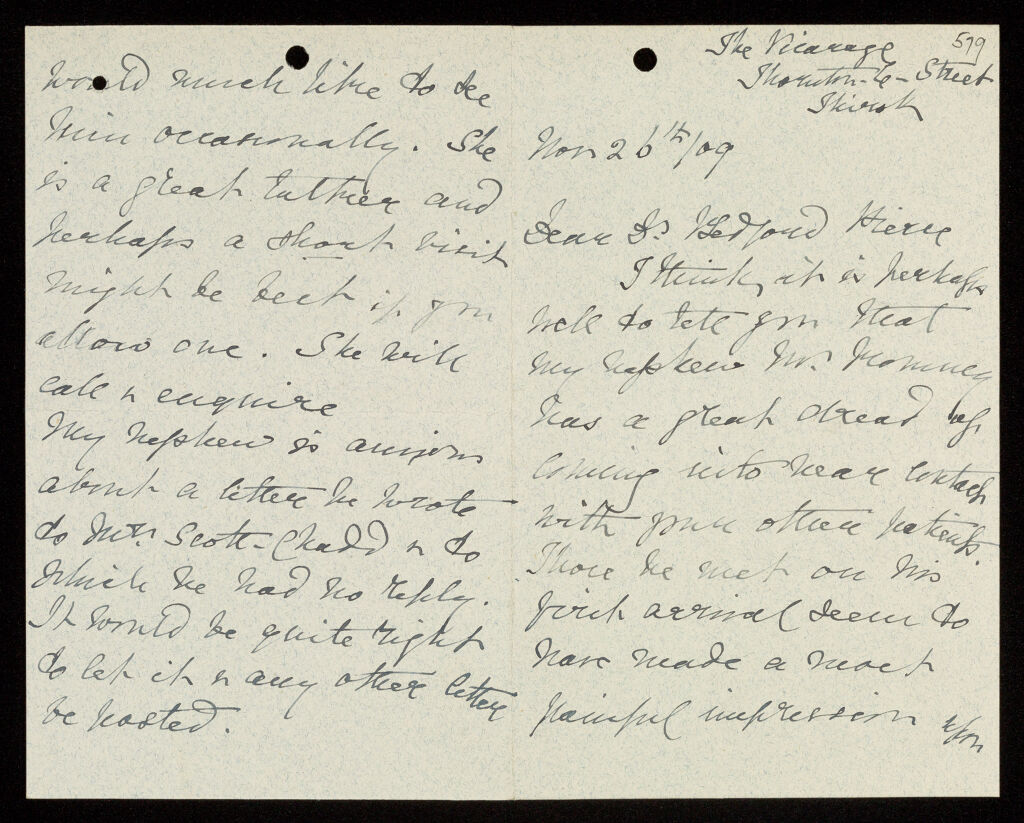 579
The Vicarage
Thornton-le-Street
Thirsk
Nov 26th/09
Dear Dr Bedford Pierce
I think, it is perhaps
well to tell you that
my nephew Mr. Romney
has a great dread of
coming into near contact
with your other patients
Those he met on his
first arrival seem to
have made a most
painful impression upon
would much like to see
him occasionally. She
is a great talker and
perhaps a short visit
might be best if you
allow one. She will
call & enquire
My nephew is anxious
about a letter he wrote
to Mrs. Scott-Chadd & to
which he had no reply.
It would be quite right
to let it & any other letter
be posted.